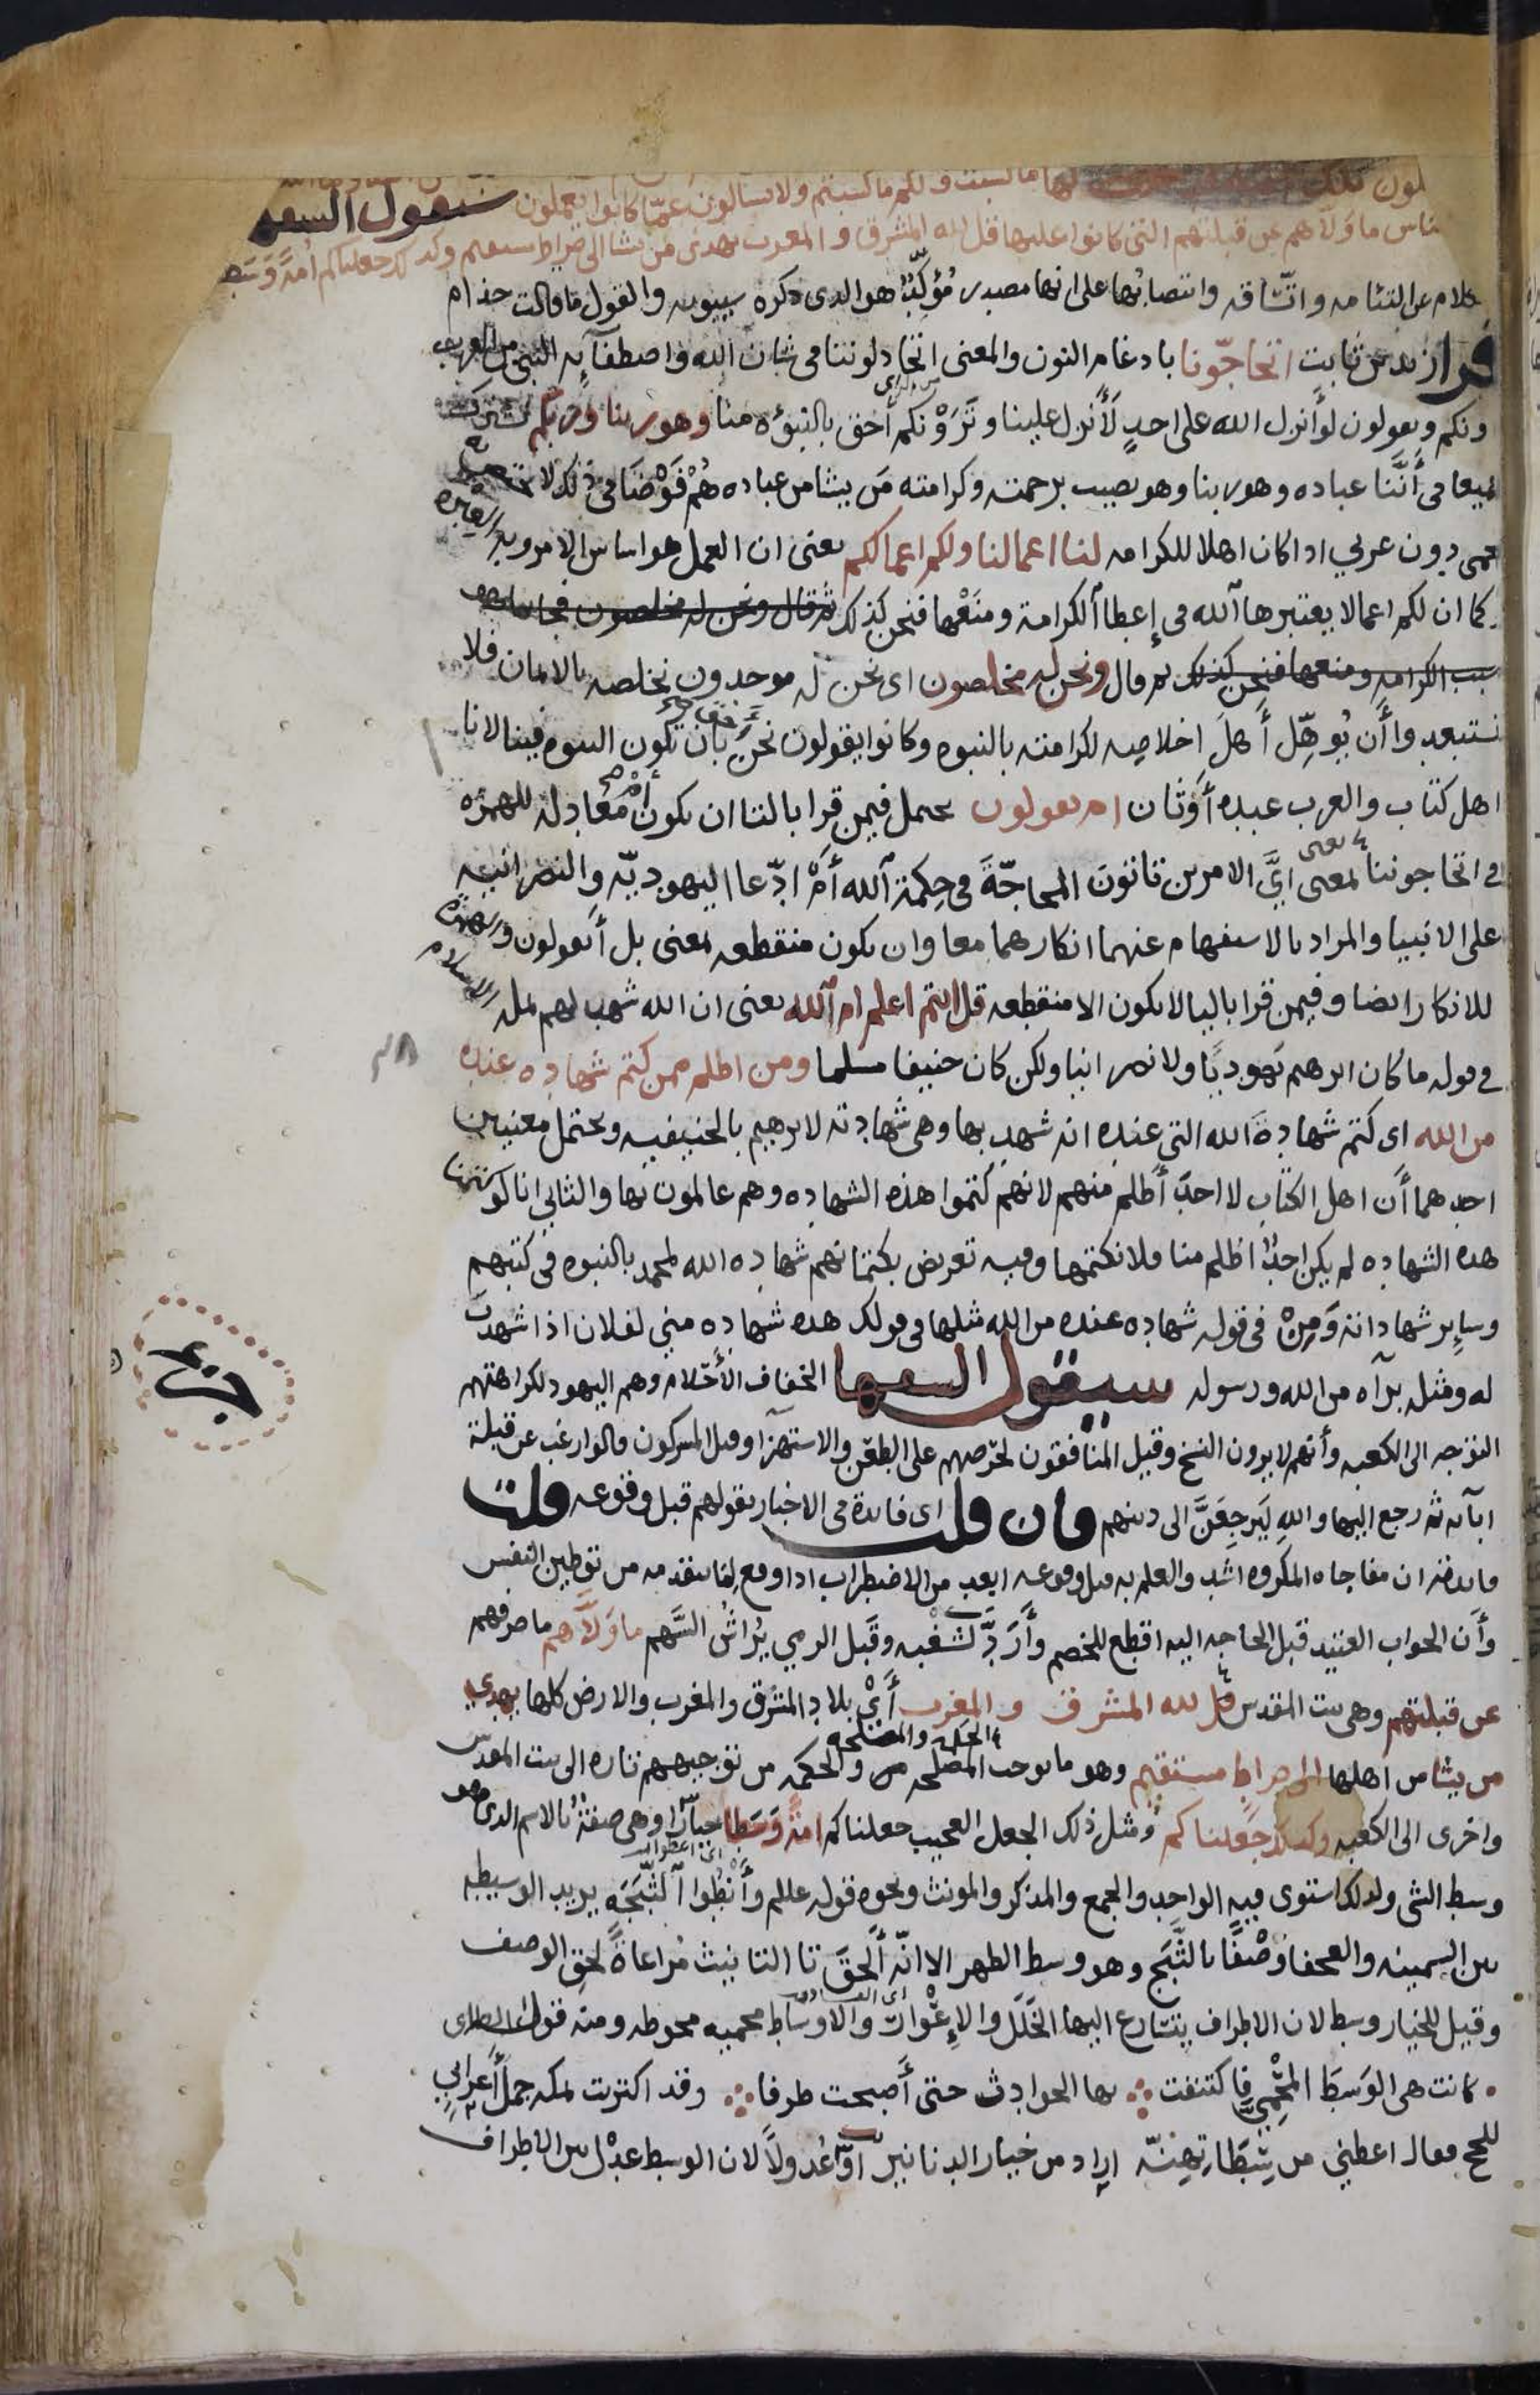 لها ما كسبت ولكم ما كسبتم ولا تسالون عما كانوا يعملون سيقول السفها
ناس ما ولاهم عن قبلتهم التي كانوا عليها قل لله المشرق و المغرب يهدي من يشا الى صراط مستقيم وكذلك جعلناكم امة وسطا
كلام عن التئامه واتساقه وانتصابها على انها مصدر مؤكد هو الذي ذكره سيبويه والقول ما قالت حذام
قرا زيد بن ثابت اتحاجونا بادغام النون والمعنى اتجادلوننا في شان الله واصطفآيه النبي من العرب
ونكم ويقولون لو أنزل الله على احد لأنزل علينا وترونكم أحق بالنبوه منا وهو ربنا وربكم نشترك
جميعا في أننا عباده وهو ربنا وهو يصيب برحمته وكرامته من يشا من عباده هم فوضا في ذلك لا يختص به
عجمي دون عربي اذا كان اهلا للكرامه لنا اعمالنا ولكم اعمالكم يعنى ان العمل هو اساس الامر وبه العبره
كما ان لكم اعمالا يعتبرها آلله في إعطا آلكرامة ومنعها فنحن كذلك ثم قال ونحن له مخلصون فجا بما هو
سبب الكرامه ومنعها فنحن كذلك ثم قال ونحن له مخلصون اى نحن له موحدون نخلصه بالايمان فلا
تستبعدوا أن يوهل أهل اخلاصه لكرامته بالنبوه وكانوا يقولون نحن أحق بان تكون النبوه فينا لانا
اهل كتاب والعرب عبده أوثان ام يقولون يحتمل فيمن قرا بالتا ان تكون أم معادلة للهمزه
في اتحاجوننا بمعنى اي الامرين تاتون المحاجة في حكمة آلله أم ادعا اليهودية والنصرانيه
على الانبيا والمراد بالاستفهام عنهما انكارهما معا وان يكون منقطعه بمعنى بل أتقولون والهمزه
للانكار ايضا وفيمن قرا باليا لا يكون الا منقطعه قل اانتم اعلم ام آلله يعنى ان الله شهد لهم بمله الاسلام
في قوله ما كان ابرهيم يهوديا ولا نصرانيا ولكن كان حنيفا مسلما ومن اظلم ممن كتم شهاده عنده
من الله اى كتم شهادة الله التي عنده انه شهد بها وهي شهادته لابرهيم بالحنيفيه ويحتمل معنيين
احدهما أن اهل الكتاب لا احد أظلم منهم لانهم كتموا هذه الشهاده وهم عالمون بها والثاني انا لو كتمنا
هذه الشهاده لم يكن احد اظلم منا فلا نكتمها وفيه تعريض بكتمانهم شهاده الله لمحمد بالنبوه في كتبهم
وسإير شهاداته ومن في قوله شهاده عنده من الله مثلها في قولك هذه شهاده مني لفلان اذا شهدت
له ومثله برآه من الله ورسوله سيقول السفها الخفاف الأحلام وهم اليهود لكراهتهم
التوجه الى الكعبه وأنهم لا يرون النسخ وقيل المنافقون لحرصهم على الطعن والاستهزا وقيل المشركون قالوا رغب عن قبلة
ابآئه ثم رجع اليها والله ليرجعن الى دينهم فان قلت اى فايدة في الاخبار بقولهم قبل وقوعه قلت
فايدته ان مفاجاه المكروه اشد والعلم به قبل وقوعه ابعد من الاضطراب اذا وقع لما يتقدمه من توطين النفس
وأن الجواب العتيد قبل الحاجه اليه اقطع للخصم وأرد لشغبه وقبل الرمي يراش السهم ما ولاهم ما صرفهم
عن قبلتهم وهي بيت المقدس قل لله المشرق و المغرب أي بلاد المشرق والمغرب والارض كلها يهدي
من يشا من اهلها الى صراط مستقيم وهو ما توجبه المصلحه والحكمه من توجيههم تاره الى بيت المقدس
واخرى الى الكعبه وكذلك جعلناكم ومثل ذلك الجعل العجيب جعلناكم امة وسطا خيارا وهي صفة بالاسم الذي هو
وسط الشي ولذلك استوى فيه الواحد والجمع والمذكر والمونث ونحوه قوله عللم وأنطوا آلثبجه يريد الوسيطه
بين السمينه والعجفا وصفا بالثبج وهو وسط الظهر الا انه ألحق تا التانيث مراعاة لحق الوصف
وقيل للخيار وسط لان الاطراف يتسارع اليها الخلل والإعوار والاوساط محميه محوطه ومنه قول الطائى
كانت هي الوسط المحمي فاكتنفت بها الحوادث حتى أصبحت طرفا وقد اكتريت بمكه جمل أعرابي
للحج فقال اعطني من سطاتهنه اراد من خيار الدنانير أو عدولا لان الوسط عدل بين الاطراف